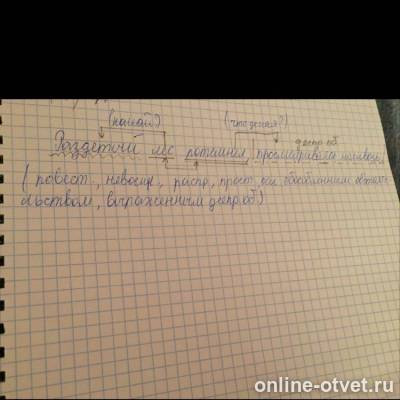 (какой?) (что делая?)
деепр. об
Раздетый лес потемнел, просматривался
(повест., невоскл., распр., прост., осл. обособленным обстоятель-
ьством, выраженным деепр. об)
online-otvet.ru